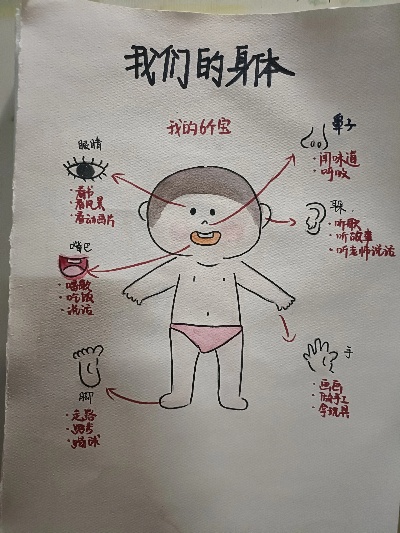 我们的身体
我的6个宝
眼睛
·看书
·看风景
·看动画片
鼻子
·闻味道
耳朵
·听歌
·听故事
·听老师说话
嘴巴
·唱歌
·吃饭
·说话
手
·画画
·做手工
·拿玩具
脚
·走路
·跑步
·踢球